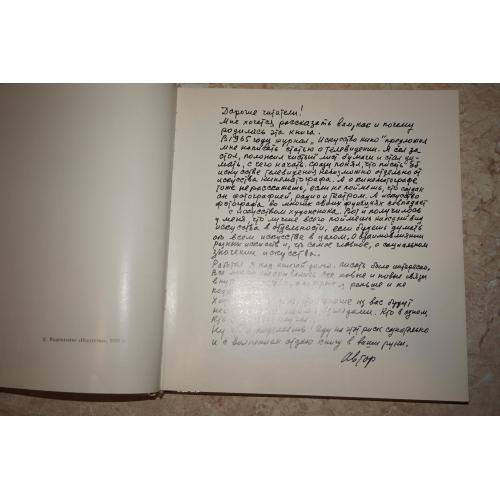 Дорогие читатели!
Мне хочется рассказать вам, как и почему
родилась эта книга.
В 1965 году журнал „Искусство кино" предложил
мне написать статью о телевидении. Я сел за
стол, положил чистый лист бумаги и стал ду-
мать, с чего начать. Сразу понял, что писать об
искусстве телевидения невозможно отдельно от
искусства кинематографа. А о кинематографе
тоже не расскажешь, если не поймешь, что создан
он фотографией, радио и театром. А искусство
фотографа во многих своих функциях совпадает
с искусством художника. Вот и получилось
у меня, что лучше всего поймешь
искусства в отдельности, если будешь думать
от всем искусстве в целом, о взаимовлиянии
разных искусств и, что самое главное, о социальном
значении искусства.
Работал я над книгой долго. Писать было интересно,
все новые и новые связи
я раньше и не
из вас будут
Кто в одном,
Ну что ж Иду на этот риск сознательно
и с волнением отдаю книгу в ваши руки.
Автор
© Издательство «Искусство»,